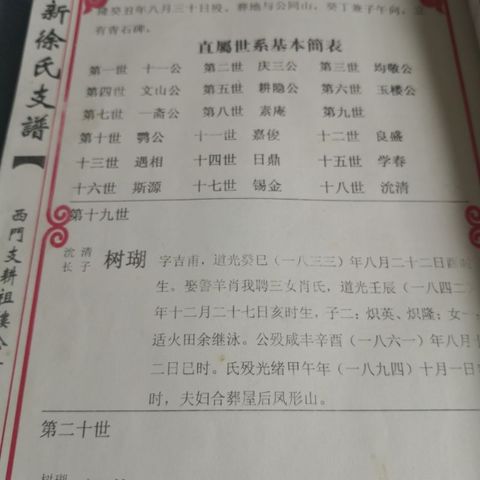 新徐氏支譜
西門支耕祖
隆癸丑年八月三十日殁。葬地与公同山，癸丁兼子午向，立
有青石碑。
直屬世系基本简表
第一世 十一公 第二世 庆三公 第三世 均敬公
第四世 文山公 第五世 耕隐公 第六世 玉楼公
第七世 一斋公 第八世 素庵 第九世
第十世 鹗公 十一世 嘉俊 十二世 良盛
十三世 遇相 十四世 日鼎 十五世 学春
十六世 斯源 十七世 锡金 十八世 沇清
第十九世
沇清长子 树瑚 字吉甫，道光癸巳（一八三三）年八月二十二日酉时
生。娶警羊肖我聘三女肖氏，道光壬辰（一八四二）
年十二月二十七日亥时生，子二：炽英、炽隆；女一：
适火田余继泳。公殁咸丰辛酉（一八六一）年八月
二日巳时。氏殁光绪甲午年（一八九四）十月一日
时，夫妇合葬屋后凤形山。
第二十世
树瑚